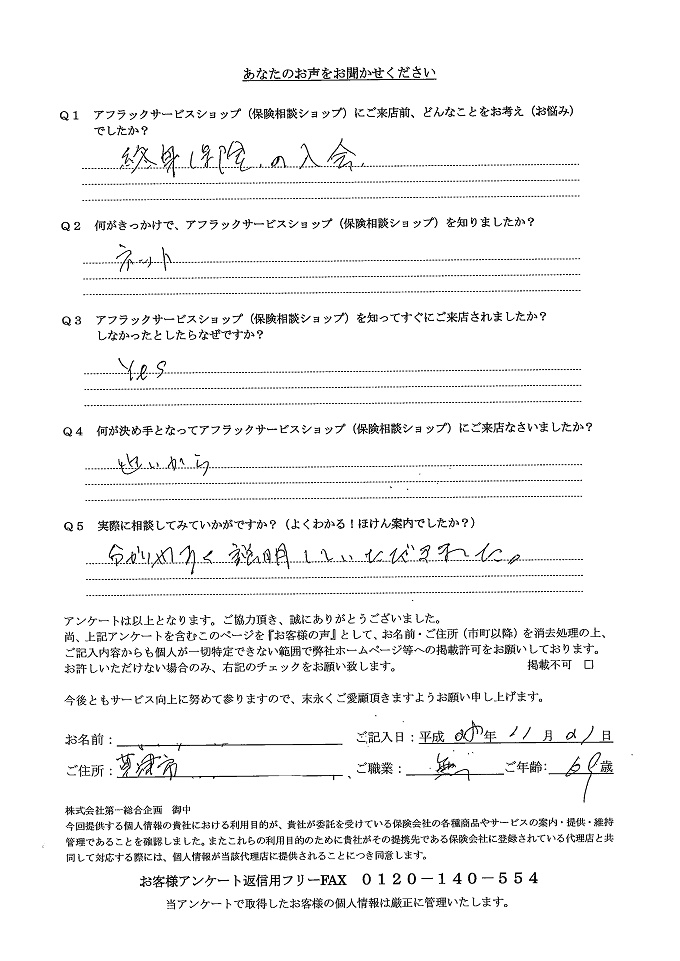 あなたのお声をお聞かせください
Q1 アフラックサービスショップ（保険相談ショップ）にご来店前、どんなことをお考え（お悩み）
でしたか？
終身保険の入会
Q2 何がきっかけで、アフラックサービスショップ（保険相談ショップ）を知りましたか？
ネット
Q3 アフラックサービスショップ（保険相談ショップ）を知ってすぐにご来店されましたか？
しなかったとしたらなぜですか？
Yes
Q4 何が決め手となってアフラックサービスショップ（保険相談ショップ）にご来店なさいましたか？
近いから
Q5 実際に相談してみていかがですか？（よくわかる！ほけん案内でしたか？）
分かりやすく説明していただきました。
アンケートは以上となります。ご協力頂き、誠にありがとうございました。
尚、上記アンケートを含むこのページを『お客様の声』として、お名前・ご住所（市町以降）を消去処理の上、
ご記入内容からも個人が一切特定できない範囲で弊社ホームページ等への掲載許可をお願いしております。
お許しいただけない場合のみ、右記のチェックをお願い致します。 掲載不可 □
今後ともサービス向上に努めて参りますので、末永くご愛顧頂きますようお願い申し上げます。
お名前： ご記入日：平成 年 11 月 21 日
ご住所：草津市 、ご職業： 無 ご年齢： 69 歳
株式会社第一総合企画 御中
今回提供する個人情報の貴社における利用目的が、貴社が委託を受けている保険会社の各種商品やサービスの案内・提供・維持
管理であることを確認しました。またこれらの利用目的のために貴社がその提携先である保険会社に登録されている代理店と共
同して対応する際には、個人情報が当該代理店に提供されることにつき同意します。
お客様アンケート返信用フリーFAX 0120－140－554
当アンケートで取得したお客様の個人情報は厳正に管理いたします。